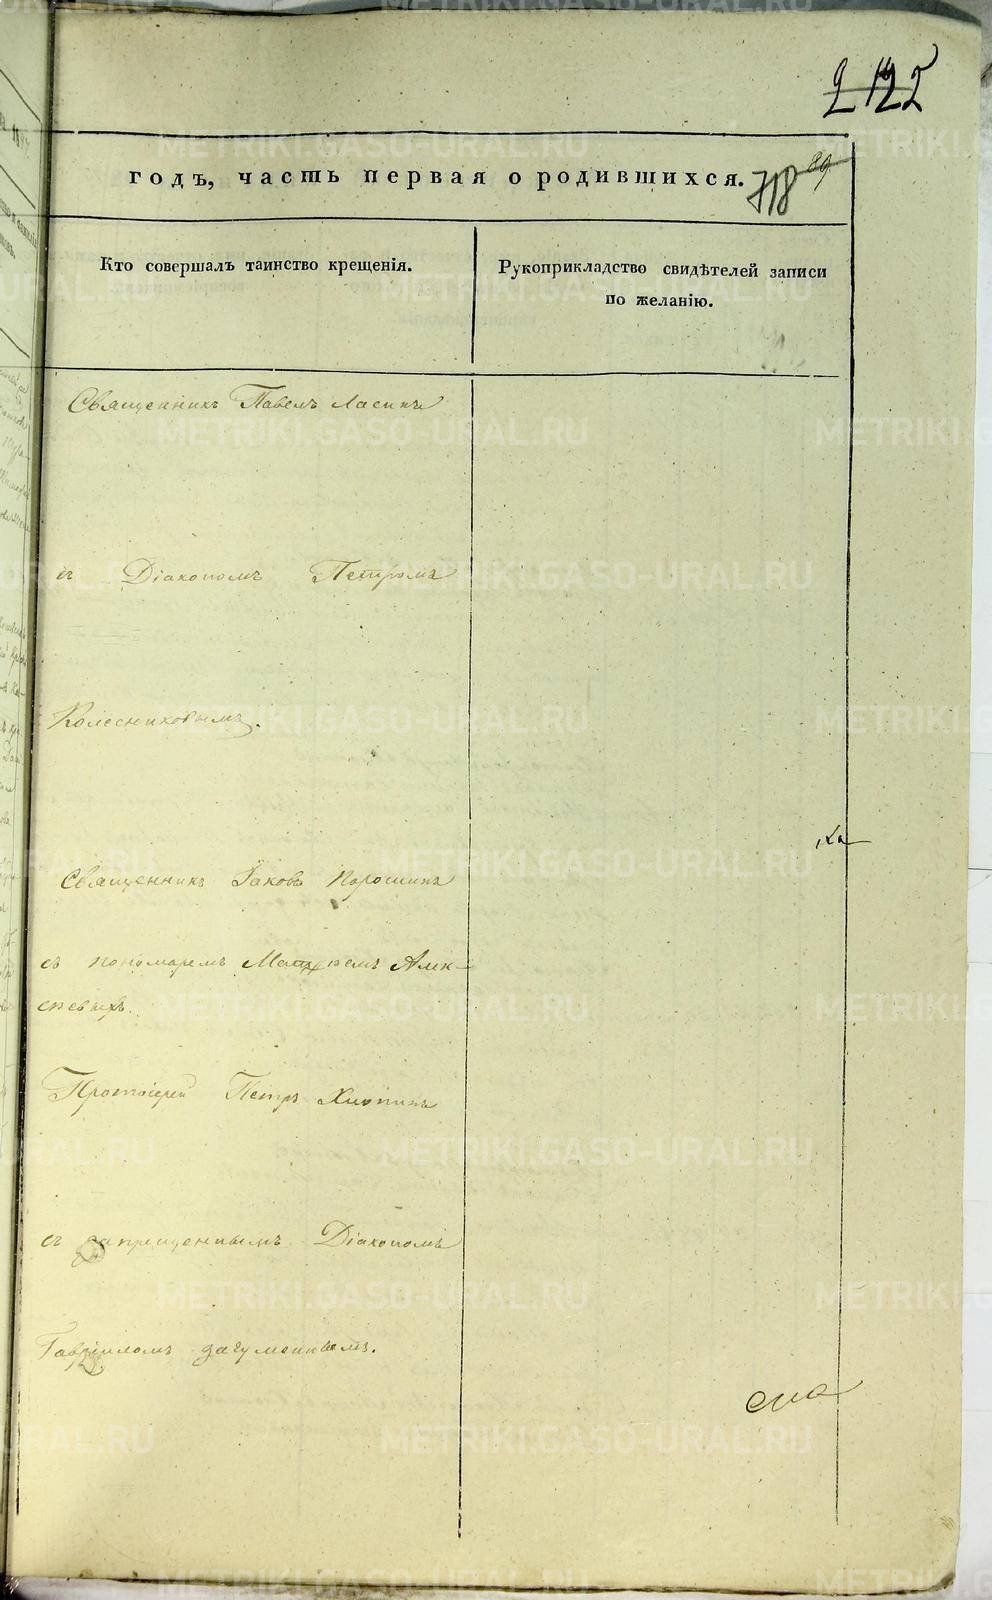 годъ, часть первая о родившихся.
718
Кто совершалъ таинство крещенія.
Рукоприкладство свидѣтелей записи
по желанію.
Священникъ Павелъ Ласинъ
съ Діакономъ Петромъ
Колесниковымъ.
Священникъ Іаковъ Порошинъ
съ пономаремъ Матѳѣемъ Алек-
сѣевыхъ.
Протоіерей Петръ Хлопинъ
съ запрещеннымъ Діакономъ
Гавріиломъ
METRIKI.GASO-URAL.RU